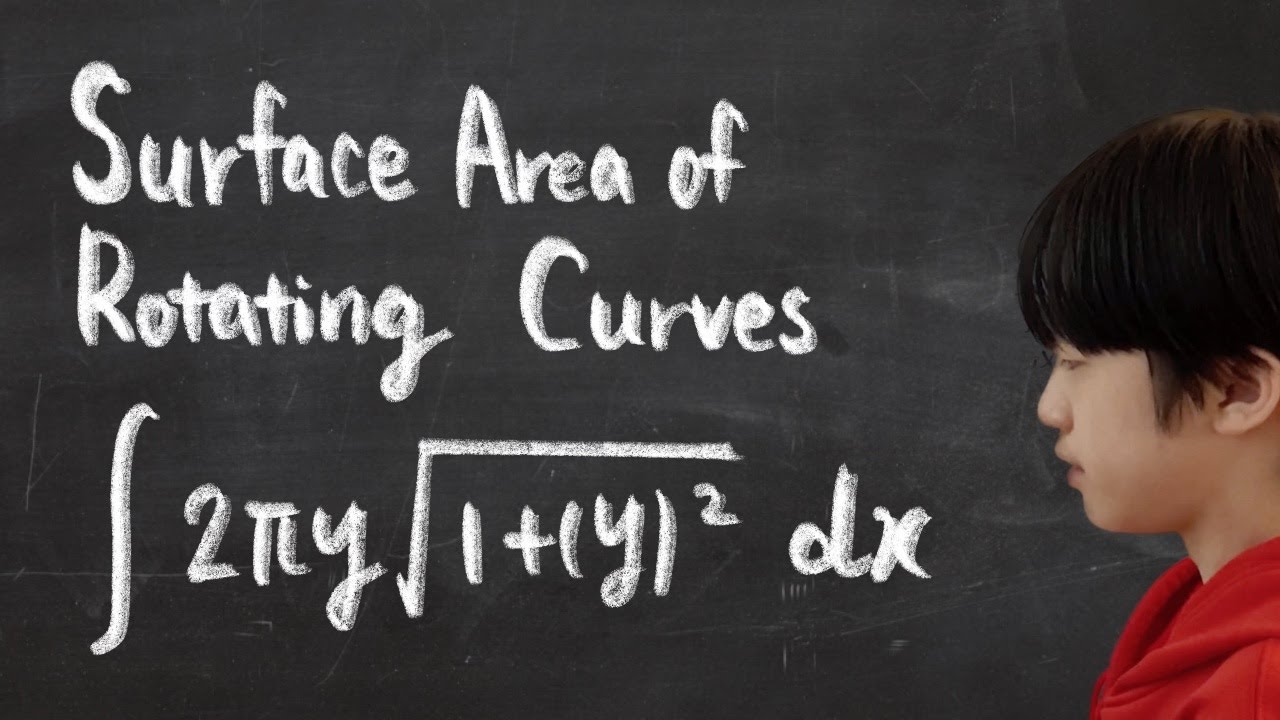 Surface Area of
Rotating Curves
∫ 2πy√1+(y)² dx